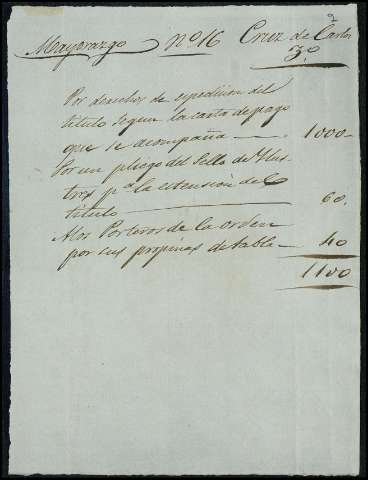 Mayorazgo Nº 16 Cruz de Carlos
3.º
Por derechos de espedicion del
titulo segun la carta de pago
que se acompaña — 1000 -
Por un pliego del Sello de Ilus
tres pª la estension del
titulo — 60.
A los Porteros de la orden
por sus propinas de tabla — 40
1100